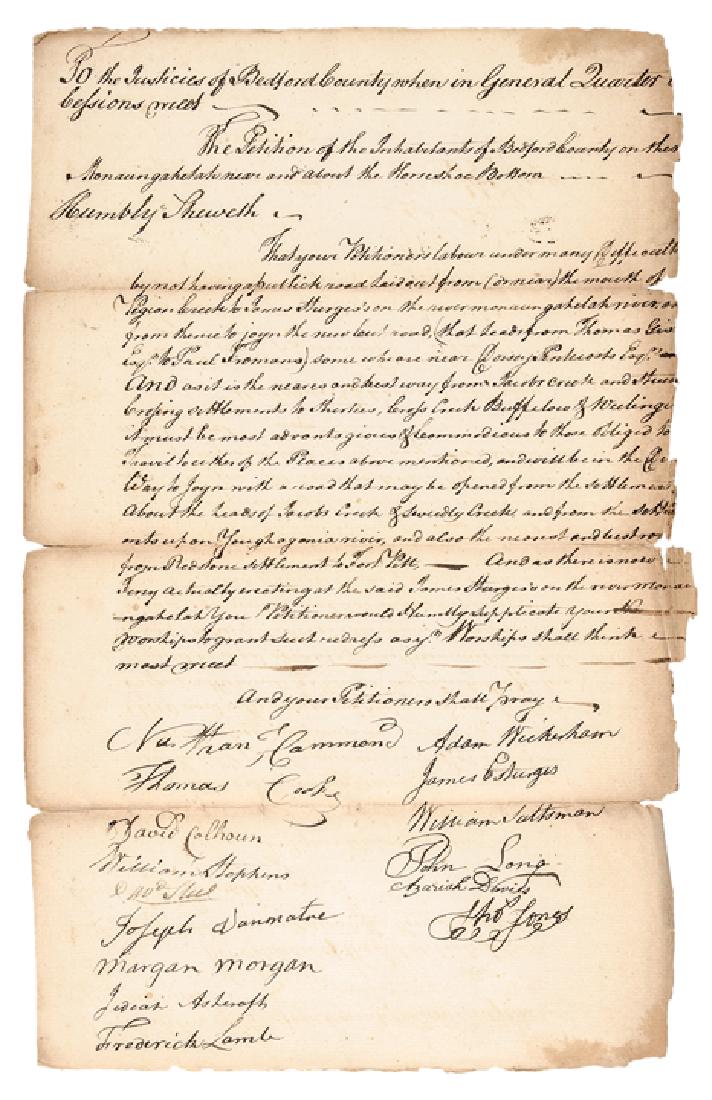 To the Justicies of Bedford County when in General Quarter
Cessions meet
The Petition of the Inhabitants of Bedford County on the
Monaungahelah near and about the Horseshoe Bottom
Humbly Sheweth
That your Petitioners labour under many
by not having a publick road laid out from (or near) the mouth of
Pigion Creek to James Sturges's on the river monaungahelah river,
from thence to joyn the new cut road, (that leads from Thomas Gis
Esqr. to Paul Fromans) some where near Dorsey Pentecosts Esqr.
And as it is the nearest and best way from Jacobs creek and
Crosing settlements to Sherties, Cross Creek Buffelow & Weeling
it must be most advantagious & Commodious to those Obliged to
Travil to either of the Places above mentioned, and will be in the
Way to Joyn with a road that may be opened from the Settlem
About the heads of Jacobs Creek & Swedly Creek and from the settle
ments upon Youghogania river, and also the nearest and best ro
from Redstone settlement to Fort Pitt, And as there is now
Ferry actually erecting at the said James Sturges's on the river Monau
ngahelah Your Petitioners would Humbly Supplicate your
Worships to grant such redress as yr. Worships shall think
most meet
And your Petitioners shall Pray
Nathan Hammond Adam Wickersham
Thomas Cook James Sturges
William Saltsman
David Colhoun
William Stephens John Long
David Steel Chariah Davis
Joseph Vanmatre Thos Jones
Margan Morgan
Jediah Ashcraft
Frederick Lamb